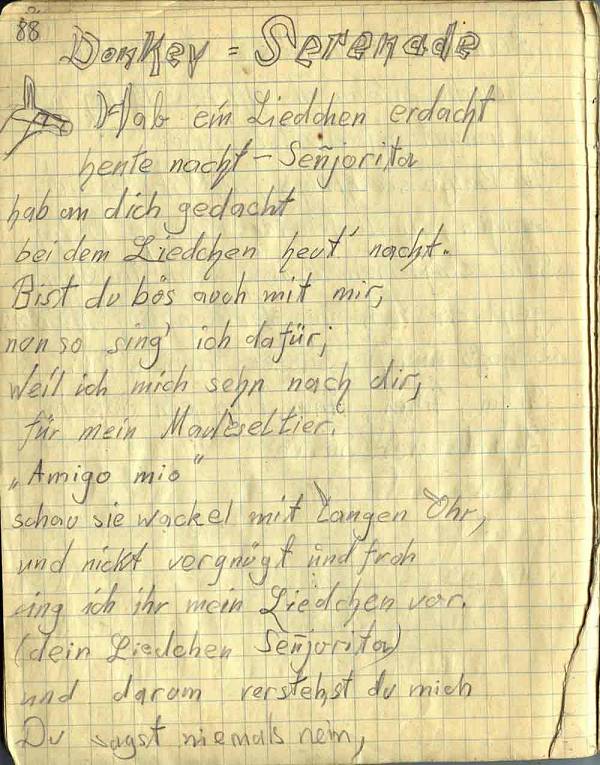 88
Donkey = Serenade
Hab ein Liedchen erdacht
heute nacht – Señjorita
hab an dich gedacht
bei dem Liedchen heut' nacht.
Bist du bös auch mit mir,
nun so sing' ich dafür;
weil ich mich sehn nach dir,
für mein Mauleseltier.
„Amigo mio"
schau sie wackel mit Langen Ohr,
und nickt vergnügt und froh
sing ich ihr mein Liedchen vor.
(dein Liedchen Señjorita)
und darum verstehst du mich
Du sagst niemals nein,